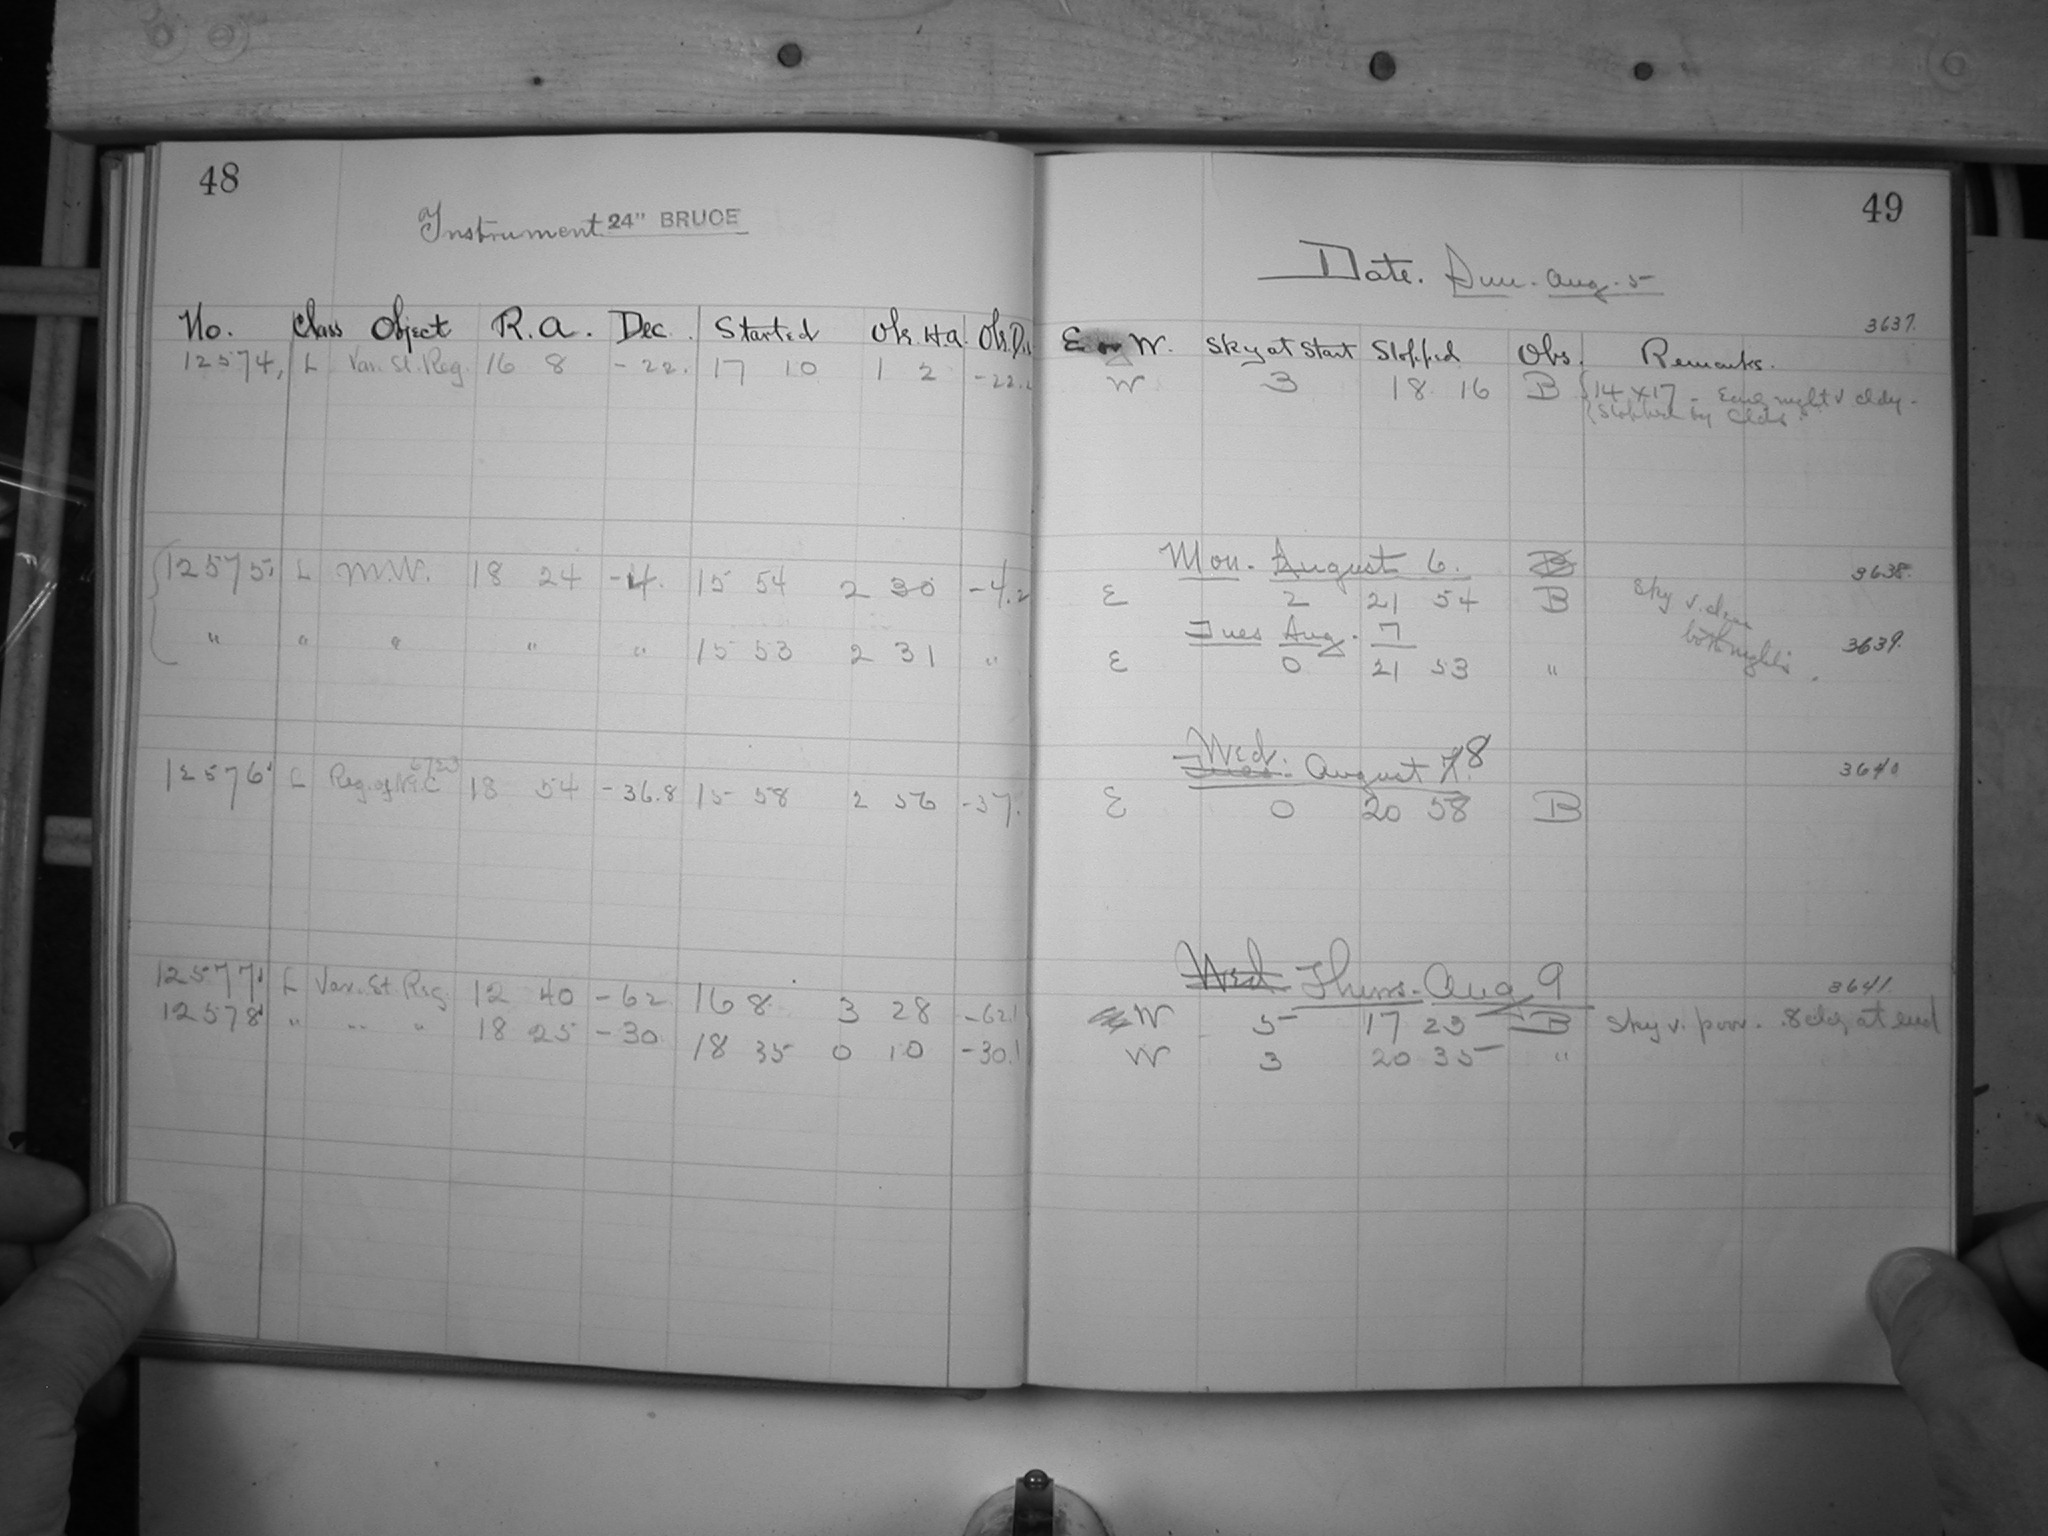 48
Instrument 24" BRUCE
No. Class Object R.A. Dec. Started Obs. H.A. Obs. D.
12574, L Var. St. Reg. 16 8 -22. 17 10 1 2 -22.2
12575, L M.W. 18 24 -4. 15 54 2 30 -4.2
" " " " " 15 53 2 31 "
12576 L Reg. of N.G.C 6723 18 54 -36.8 15 58 2 56 -37.
12577 L Var. St. Reg. 12 40 -62 16 8 3 28 -62.1
12578 " " " 18 25 -30 18 35 0 10 -30.1
49
Date. Sun. Aug. 5
3637.
E or W. Sky at Start Stopped Obs. Remarks.
W 3 18 16 B 14 x 17 - Early night v cldy -
Stopped by Clds.
Mon. August 6. B 3638.
E 2 21 54 B Sky v. clear
both nights.
Tues Aug. 7 3639.
E 0 21 53 "
Wed. Tues. August 7. 8 3640
E 0 20 58 B
Wed. Thurs. Aug 9 3641.
W 5 17 23 B Sky v. poor. 8 cldy at end
W 3 20 35 "